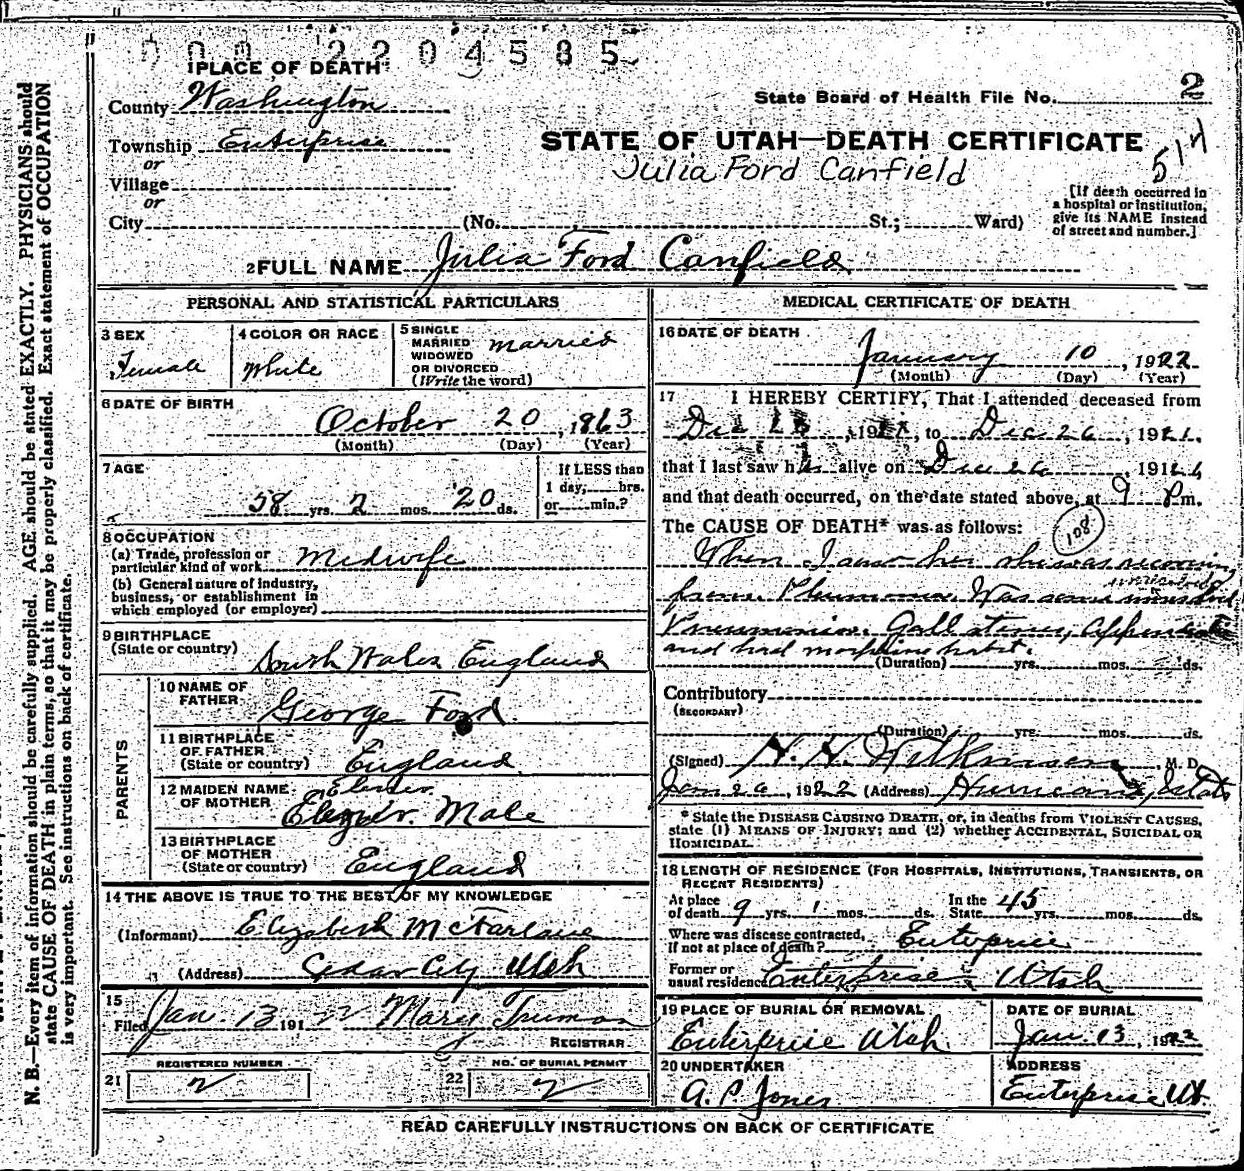 000 2204585
1 PLACE OF DEATH
County Washington
State Board of Health File No. 2
Township Enterprise
STATE OF UTAH—DEATH CERTIFICATE
or
Julia Ford Canfield
514
Village
or
City (No. St.; Ward)
[If death occurred in
a hospital or institution,
give its NAME instead
of street and number.]
2 FULL NAME Julia Ford Canfield
PERSONAL AND STATISTICAL PARTICULARS
3 SEX
Female
4 COLOR OR RACE
White
5 SINGLE
MARRIED
WIDOWED
OR DIVORCED
(Write the word)
Married
6 DATE OF BIRTH
October 20, 1863
(Month) (Day) (Year)
7 AGE
58 yrs. 2 mos. 20 ds.
If LESS than
1 day, hrs.
or min.?
8 OCCUPATION
(a) Trade, profession or
particular kind of work Midwife
(b) General nature of industry,
business, or establishment in
which employed (or employer)
9 BIRTHPLACE
(State or country) South Wales England
PARENTS
10 NAME OF
FATHER George Ford
11 BIRTHPLACE
OF FATHER
(State or country) England
12 MAIDEN NAME
OF MOTHER Male
13 BIRTHPLACE
OF MOTHER
(State or country) England
14 THE ABOVE IS TRUE TO THE BEST OF MY KNOWLEDGE
(Informant) Elizabeth McFarlane
(Address) Cedar City Utah
15
Filed Jan 13 191 Mary Truman
REGISTRAR
REGISTERED NUMBER
21 2
NO. OF BURIAL PERMIT
22 2
MEDICAL CERTIFICATE OF DEATH
16 DATE OF DEATH
January 10, 1922
(Month) (Day) (Year)
17 I HEREBY CERTIFY, That I attended deceased from
Dec , 19 , to Dec 26, 1921.
that I last saw her alive on Dec 26, 19
and that death occurred, on the date stated above, at 9 Pm.
The CAUSE OF DEATH* was as follows: 108
When I saw her she was recovering
from Was some unresolved
Pneumonia. Gall stones, Appendicitis
and had morphine habit.
(Duration) yrs. mos. ds.
Contributory
(SECONDARY)
(Duration) yrs. mos. ds.
(Signed) Wilkinson, M. D.
Jan 26, 1922 (Address) Hurricane, Utah
* State the DISEASE CAUSING DEATH, or, in deaths from VIOLENT CAUSES,
state (1) MEANS OF INJURY; and (2) whether ACCIDENTAL, SUICIDAL OR
HOMICIDAL.
18 LENGTH OF RESIDENCE (FOR HOSPITALS, INSTITUTIONS, TRANSIENTS, OR
RECENT RESIDENTS)
At place
of death 9 yrs. 1 mos. ds. In the
State 45 yrs. mos. ds.
Where was disease contracted,
If not at place of death? Enterprise
Former or
usual residence Enterprise Utah
19 PLACE OF BURIAL OR REMOVAL
Enterprise Utah
DATE OF BURIAL
Jan. 13, 1922
20 UNDERTAKER
A. P. Jones
ADDRESS
Enterprise Ut.
READ CAREFULLY INSTRUCTIONS ON BACK OF CERTIFICATE
N. B.—Every item of information should be carefully supplied. AGE should be stated EXACTLY. PHYSICIANS should
state CAUSE OF DEATH in plain terms, so that it may be properly classified. Exact statement of OCCUPATION
is very important. See instructions on back of certificate.